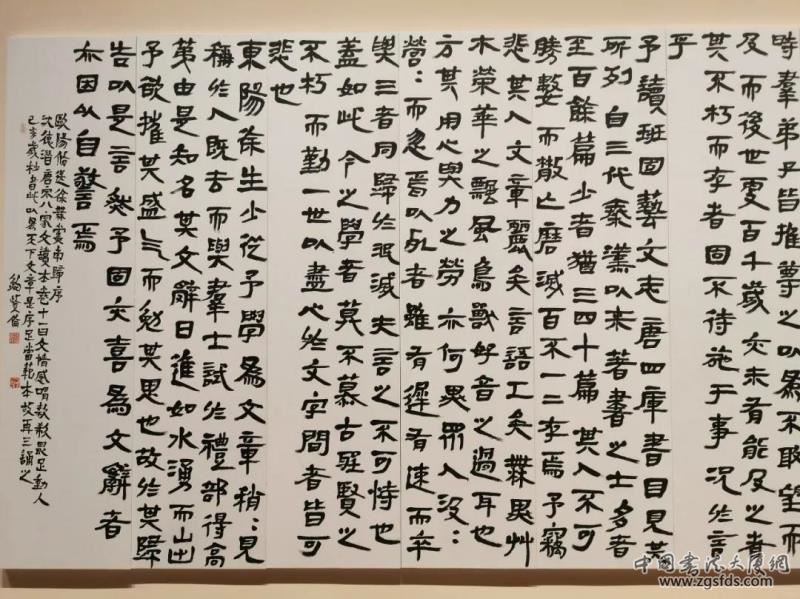 時羣弟子皆推尊之以爲不敢望而
及而後世更百千歲亦未有能及之者
其不朽而存者固不待施于事況於言
乎
予讀班固藝文志唐四庫書目見其
所列自三代秦漢以來著書之士多者
至百餘篇少者猶三四十篇其人不可
勝數而散亡磨滅百不一二存焉予竊
悲其人文章麗矣言語工矣無異艸
木榮華之飄風鳥獸好音之過耳也
方其用心與力之勞亦何異眾人汲:
營:而忽焉以死者雖有遲有速而卒
與三者同歸於泯滅夫言之不可恃也
蓋如此今之學者莫不慕古聖賢之
不朽而勤一世以盡心於文字間者皆可
悲也
東陽徐生少從予學爲文章稍:見
稱於人既去而與羣士試於禮部得高
第由是知名其文辭日進如水湧而山出
予欲摧其盛气而勉其思也故於其歸
告以是言然予固亦喜爲文辭者
亦因以自警焉
歐陽修送徐無黨南歸序
沈德潛唐宋八家文讀本卷十一曰文情感喟歔欷最足動人
己亥歲杪書此以爲天下文章是序足當範本故再三誦之
鮑賢倫
中国书法大厦網
www.zgsfds.com